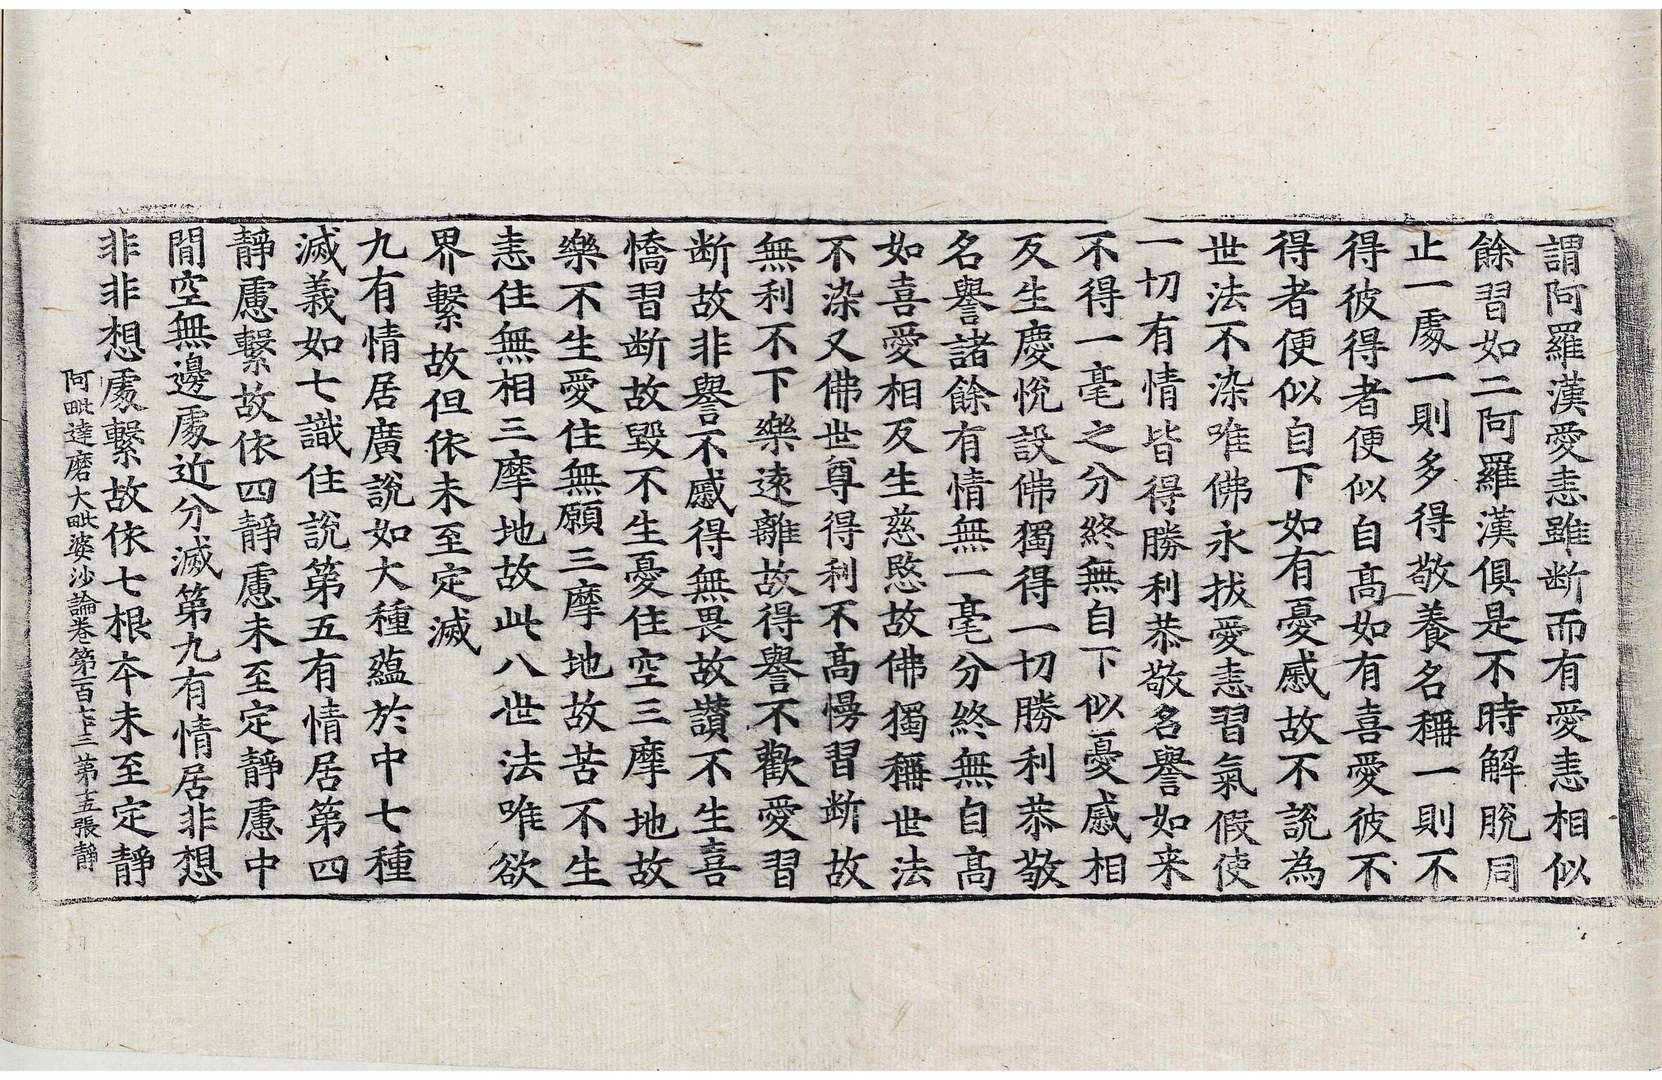 謂阿羅漢愛恚雖断而有愛恚相似
餘習如二阿羅漢俱是不時解脫同
止一處一則多得敬養名稱一則不
得彼得者便似自高如有喜愛彼不
得者便似自下如有憂慼故不說為
世法不染唯佛永拔愛恚習氣假使
一切有情皆得勝利恭敬名譽如来
不得一毫之分終無自下似憂慼相
反生慶悅設佛獨得一切勝利恭敬
名譽諸餘有情無一毫分終無自高
如喜愛相反生慈愍故佛獨稱世法
不染又佛世尊得利不高慢習断故
無利不下樂遠離故得譽不歡愛習
断故非譽不慼得無畏故讃不生喜
憍習断故毀不生憂住空三摩地故
樂不生愛住無願三摩地故苦不生
恚住無相三摩地故此八世法唯欲
界繫故但依未至定滅
九有情居廣說如大種蘊於中七種
滅義如七識住說第五有情居第四
靜慮繫故依四靜慮未至定靜慮中
間空無邊處近分滅第九有情居非想
非非想處繫故依七根本未至定靜
阿毗達磨大毗婆沙論卷第一百七十三 第十五張 靜